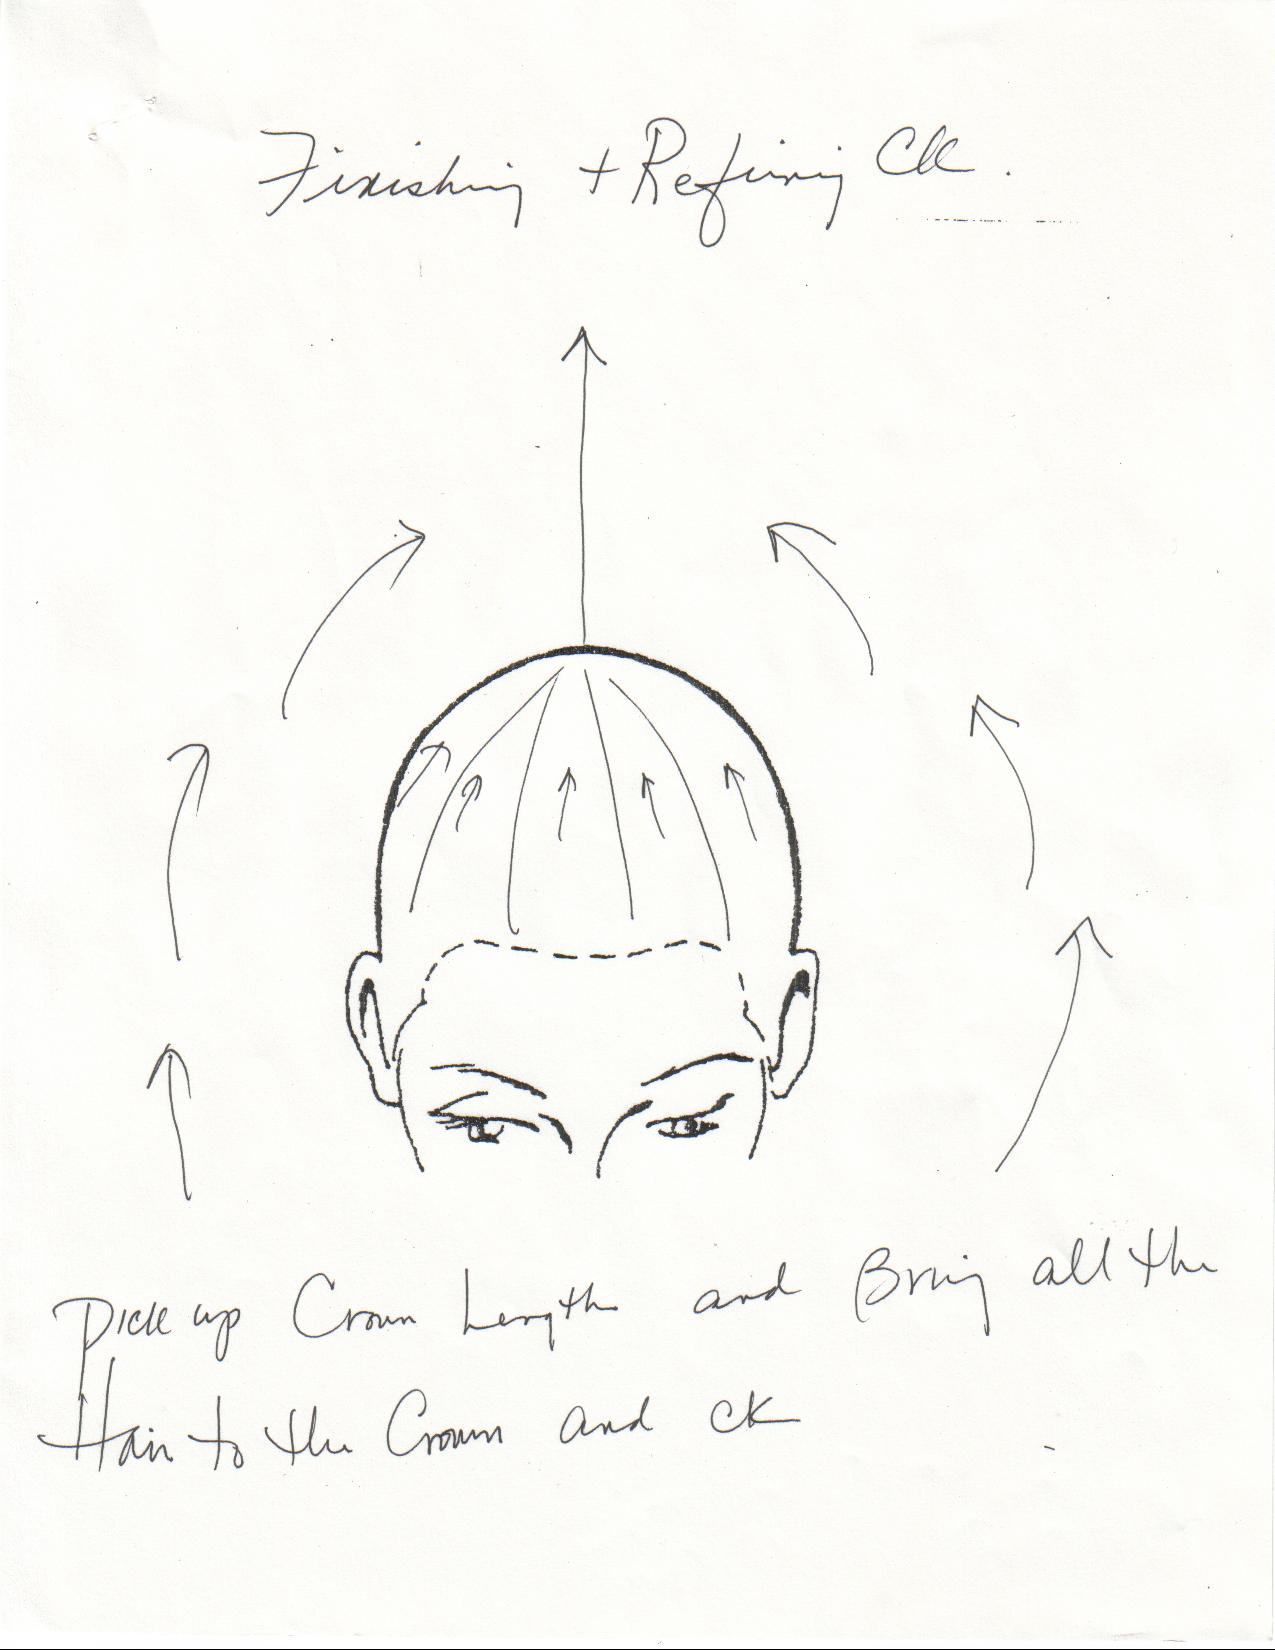 Finishing + Refining Ck.
Pick up Crown Length and Bring all the
Hair to the Crown and ck